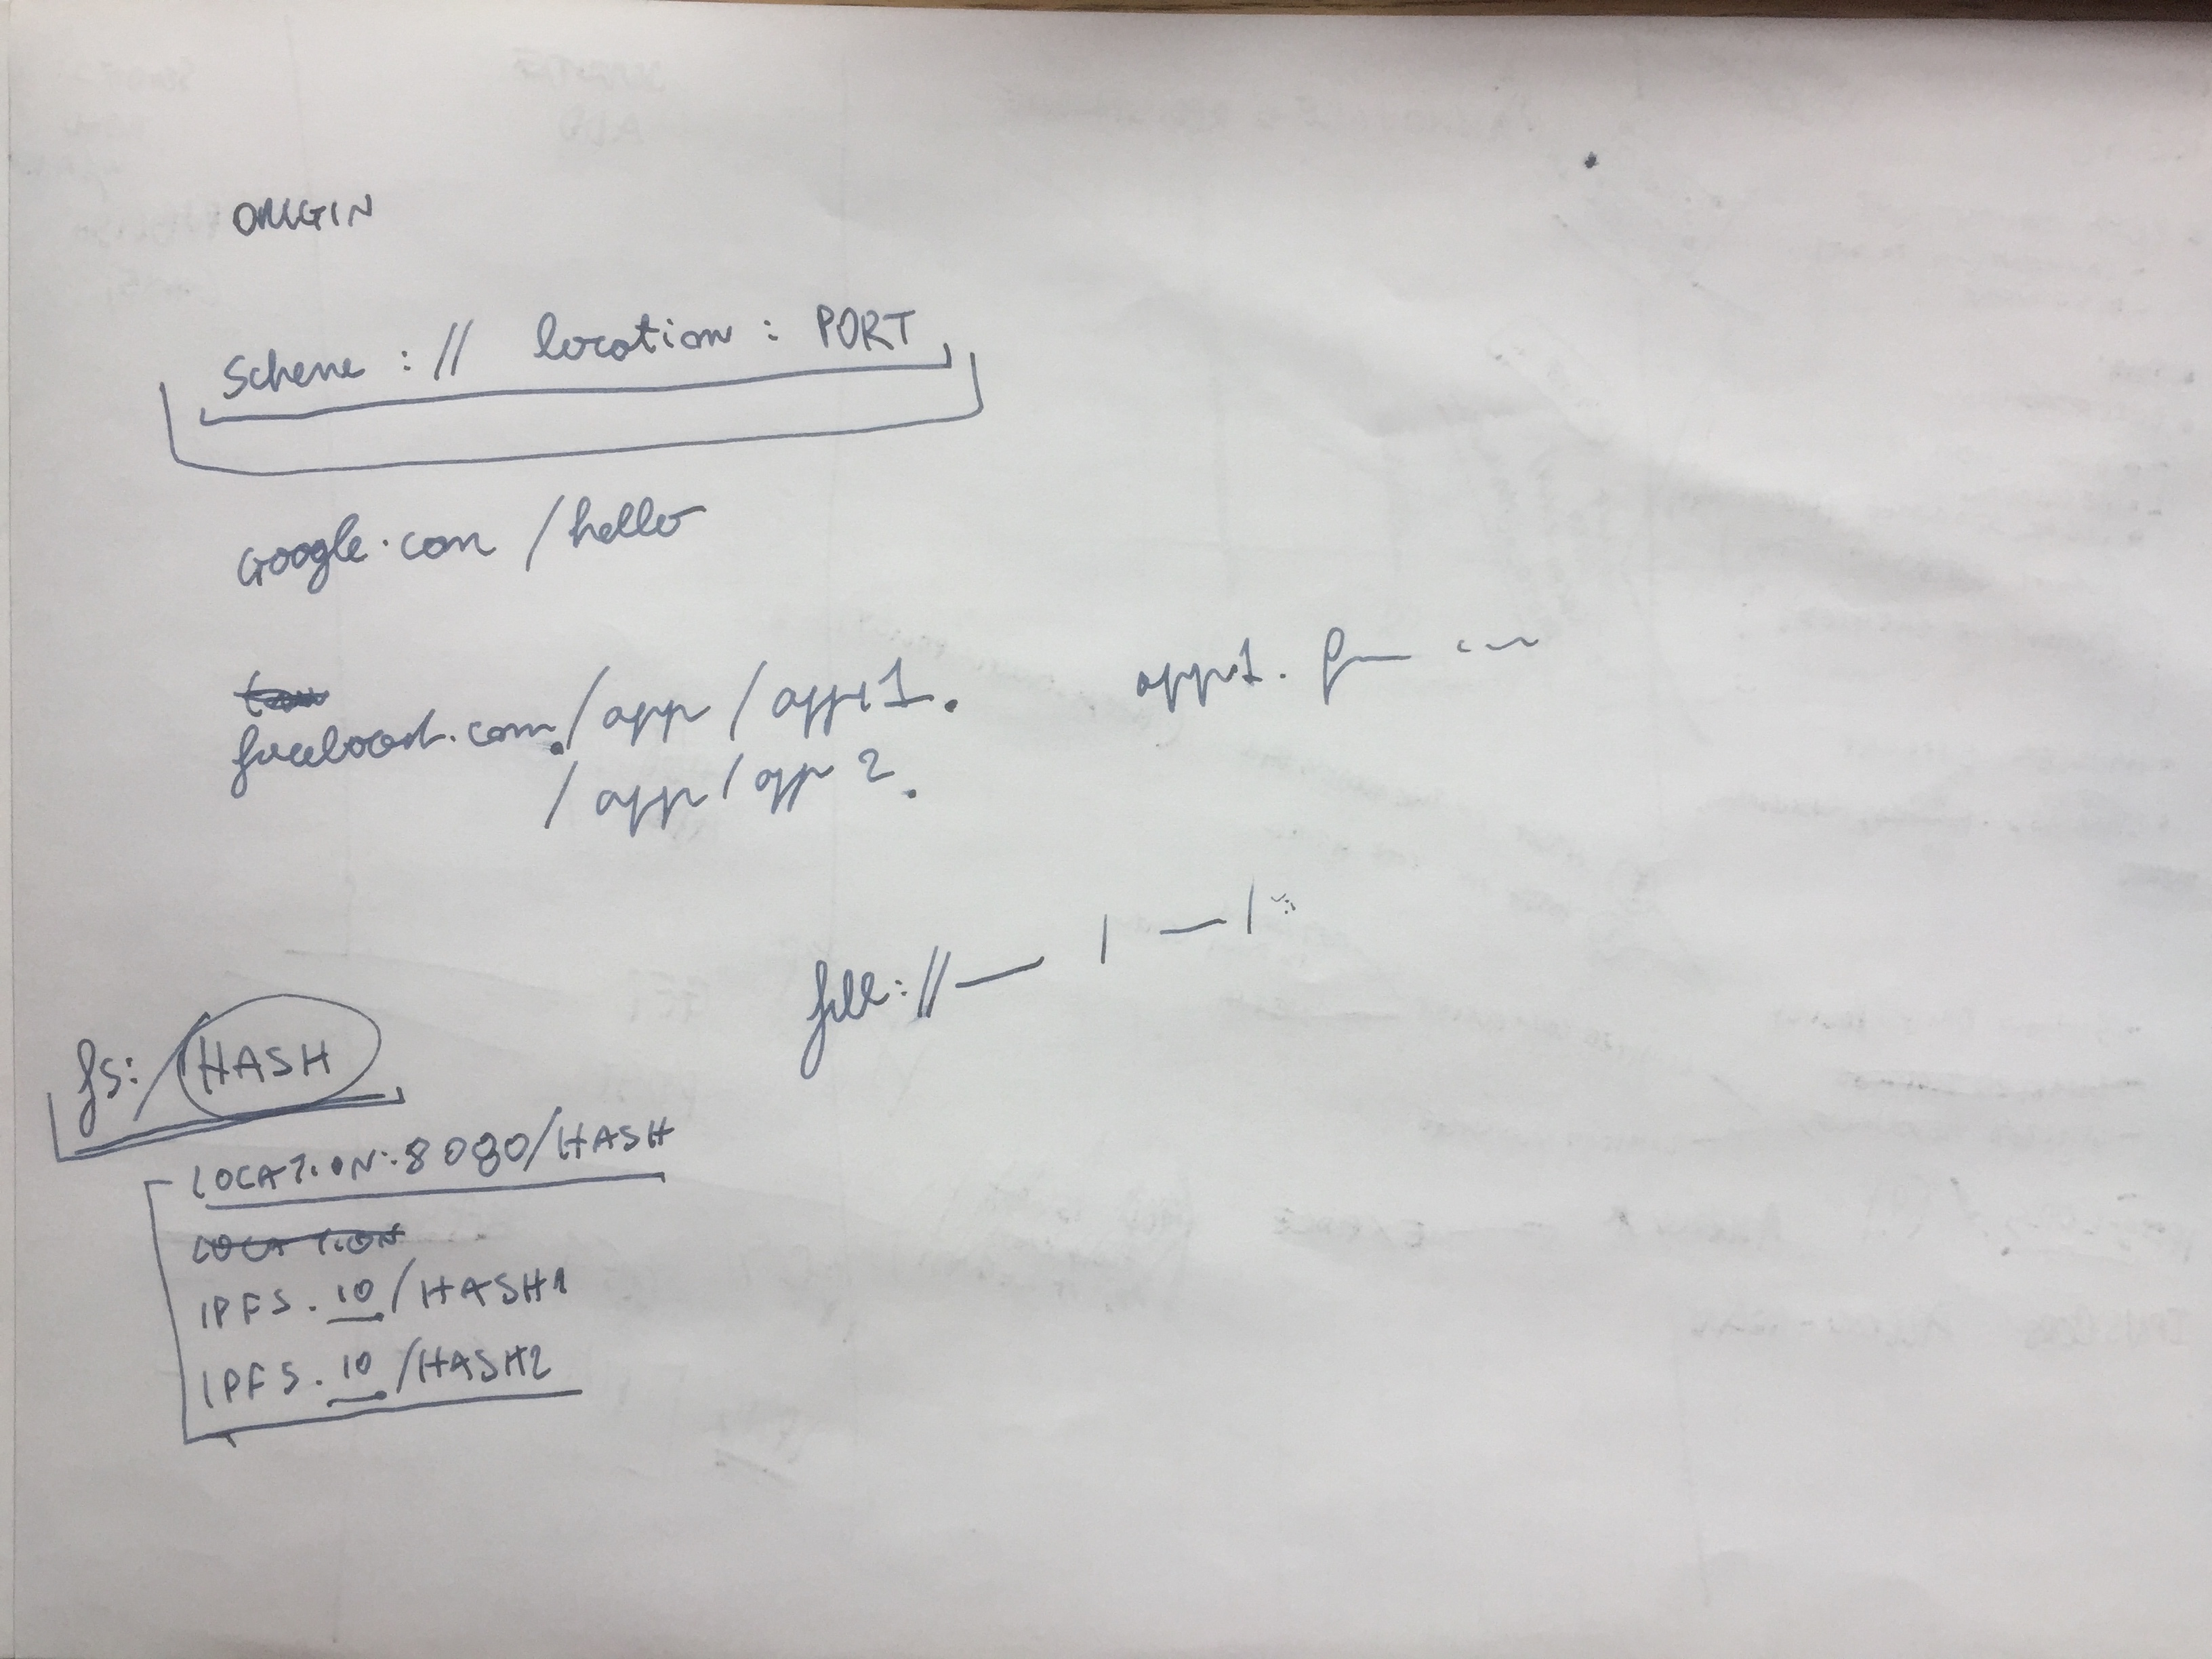 ORIGIN
Scheme :// location : PORT
Google.com /hello
facebook.com/app/app1.
app1. f
/app/app 2.
file://
fs:/HASH
LOCATION:8080/HASH
LOCATION
IPFS.io/HASH1
IPFS.io/HASH2